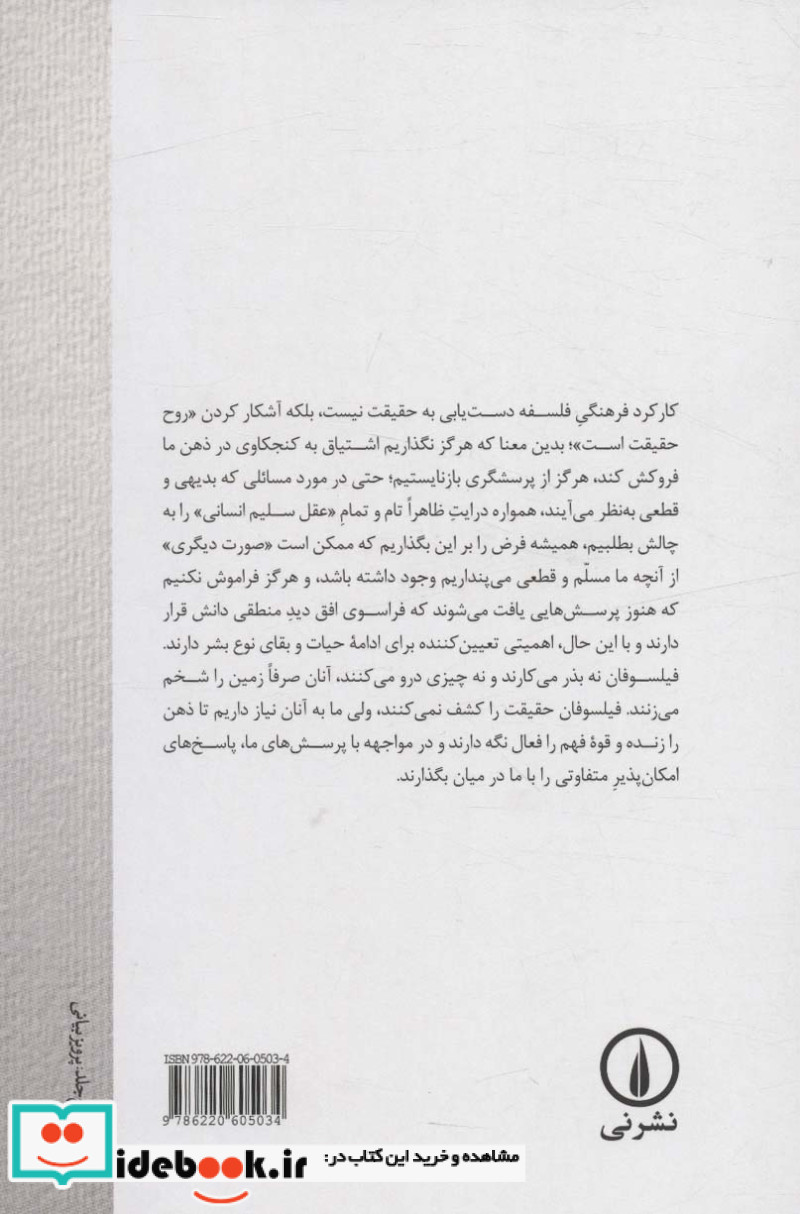 کارکرد فرهنگیِ فلسفه دست‌یابی به حقیقت نیست، بلکه آشکار کردن «روح
حقیقت است»؛ بدین معنا که هرگز نگذاریم اشتیاق به کنجکاوی در ذهن ما
فروکش کند، هرگز از پرسشگری بازنایستیم؛ حتی در مورد مسائلی که بدیهی و
قطعی به‌نظر می‌آیند، همواره درایتِ ظاهراً تام و تمامِ «عقل سلیم انسانی» را به
چالش بطلبیم، همیشه فرض را بر این بگذاریم که ممکن است «صورت دیگری»
از آنچه ما مسلّم و قطعی می‌پنداریم وجود داشته باشد، و هرگز فراموش نکنیم
که هنوز پرسش‌هایی یافت می‌شوند که فراسوی افق دیدِ منطقی دانش قرار
دارند و با این حال، اهمیتی تعیین‌کننده برای ادامهٔ حیات و بقای نوع بشر دارند.
فیلسوفان نه بذر می‌کارند و نه چیزی درو می‌کنند، آنان صرفاً زمین را شخم
می‌زنند. فیلسوفان حقیقت را کشف نمی‌کنند، ولی ما به آنان نیاز داریم تا ذهن
را زنده و قوهٔ فهم را فعال نگه دارند و در مواجهه با پرسش‌های ما، پاسخ‌های
امکان‌پذیرِ متفاوتی را با ما در میان بگذارند.
جلد: پرویز بیانی
ISBN 978-622-06-0503-4
9 786220 605034
نشرنی
مشاهده و خرید این کتاب در:
idebook.ir